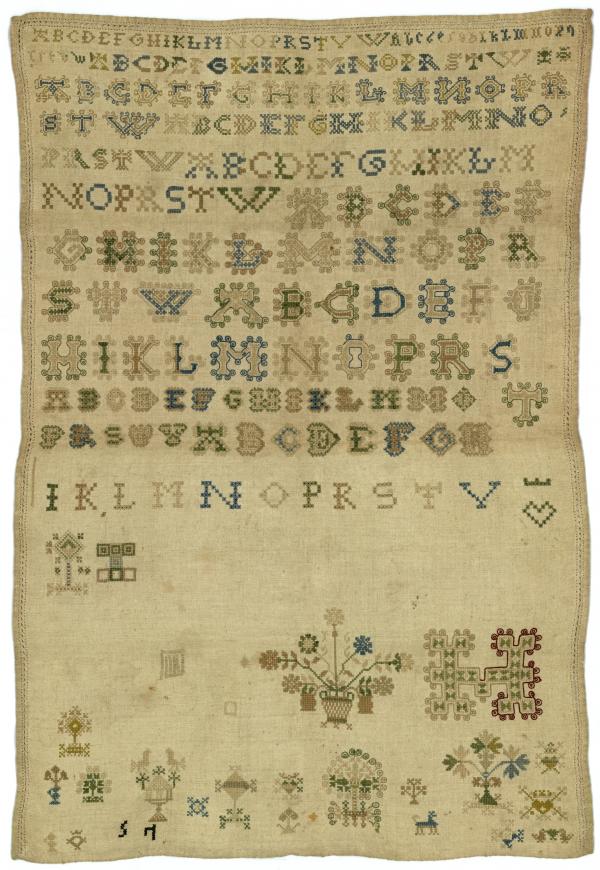 ABCDEFGHIKLMNOPRSTVW abcde iklmnopq
ABCDEFGHIKLMNOPRSTVW
ABCDEFGHIKLMNOPR
STW ABCDEFGHIKLMNO
PRSTW ABCDEFGHIKLM
NOPRSTW ABCDEF
GHIKLMNOPR
STW ABCDEFG
HIKLMNOPRS
ABCDEFGHIKLMN
T
PRSVVX BCDEFGH
IKLMNOPRSTV
SH